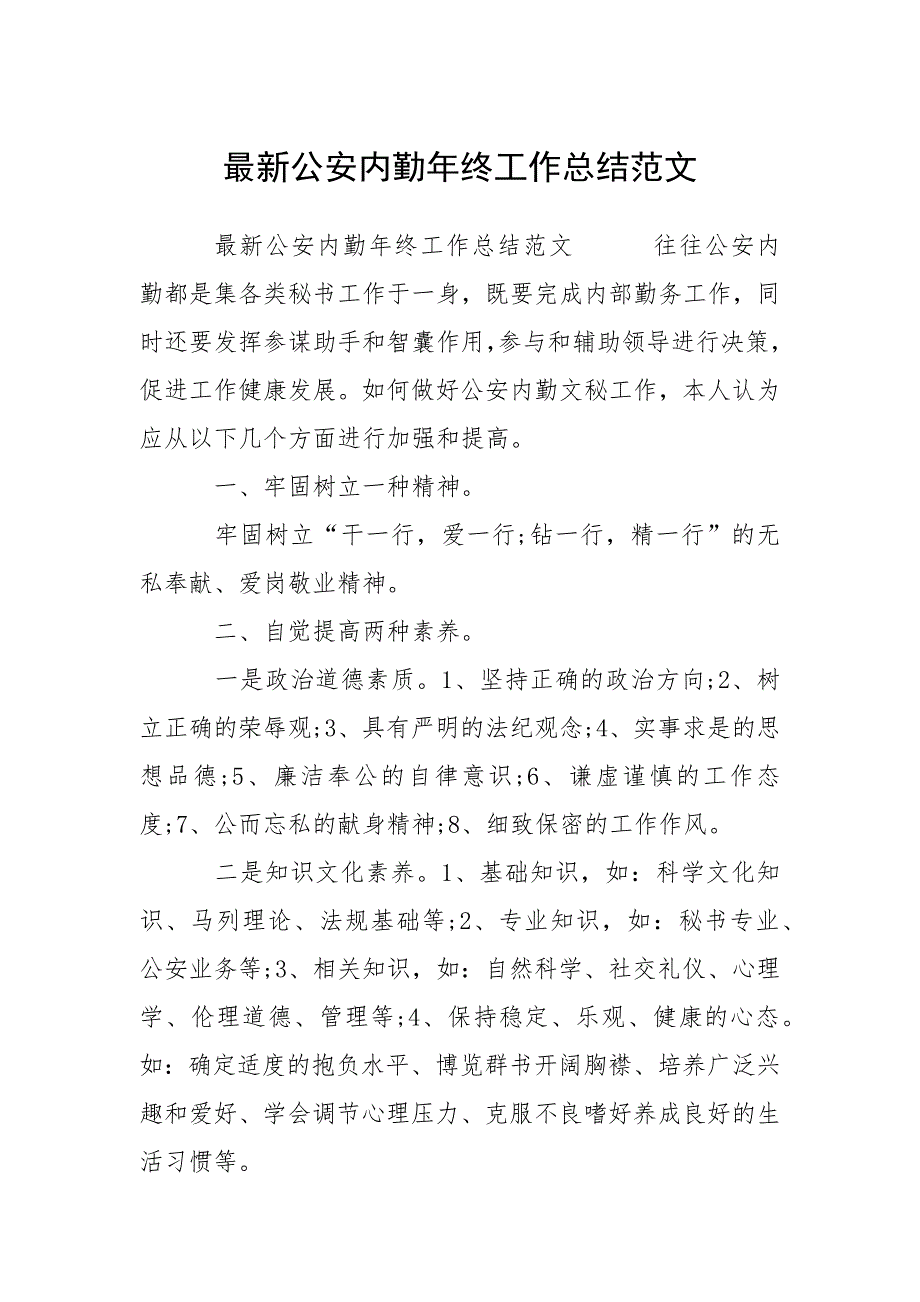 最新公安内勤年终工作总结范文
最新公安内勤年终工作总结范文 往往公安内
勤都是集各类秘书工作于一身，既要完成内部勤务工作，同
时还要发挥参谋助手和智囊作用，参与和辅助领导进行决策，
促进工作健康发展。如何做好公安内勤文秘工作，本人认为
应从以下几个方面进行加强和提高。
一、牢固树立一种精神。
牢固树立“干一行，爱一行;钻一行，精一行”的无
私奉献、爱岗敬业精神。
二、自觉提高两种素养。
一是政治道德素质。1、坚持正确的政治方向;2、树
立正确的荣辱观;3、具有严明的法纪观念;4、实事求是的思
想品德;5、廉洁奉公的自律意识;6、谦虚谨慎的工作态
度;7、公而忘私的献身精神;8、细致保密的工作作风。
二是知识文化素养。1、基础知识，如：科学文化知
识、马列理论、法规基础等;2、专业知识，如：秘书专业、
公安业务等;3、相关知识，如：自然科学、社交礼仪、心理
学、伦理道德、管理等;4、保持稳定、乐观、健康的心态。
如：确定适度的抱负水平、博览群书开阔胸襟、培养广泛兴
趣和爱好、学会调节心理压力、克服不良嗜好养成良好的生
活习惯等。